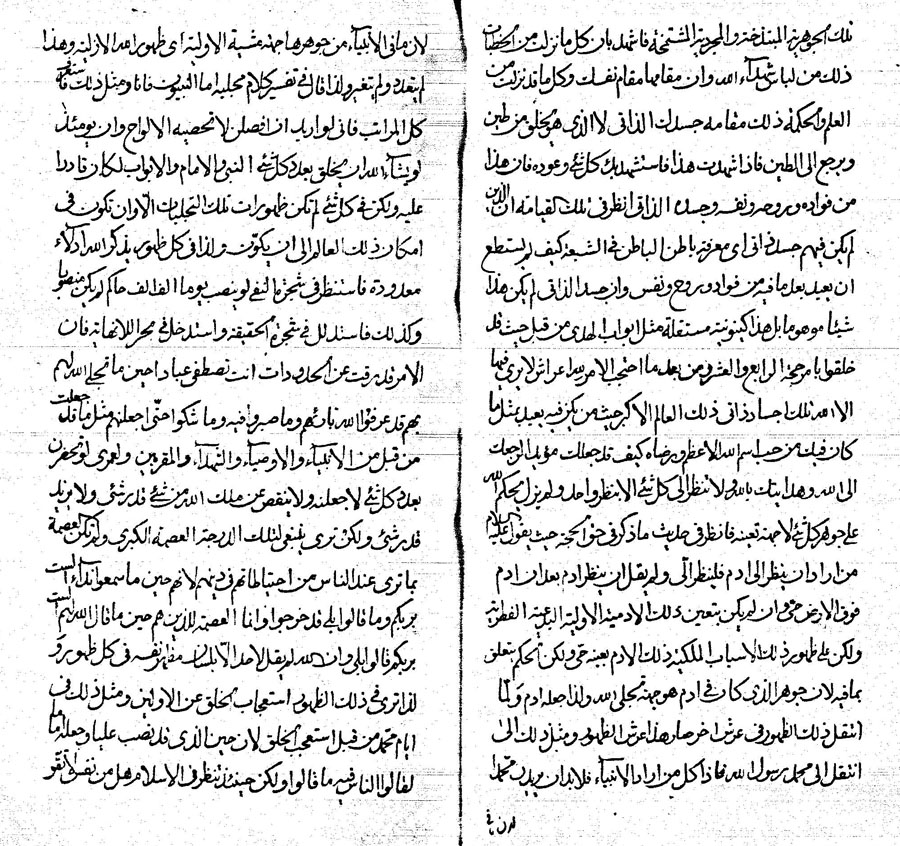 تلك الجوهرية المتباذخة والمجردية المتشمخة فاشهد بان كل ما نزلت من
ذلك من لباس شهداء الله وان مقامها مقام نفسك وكل ما قد نزلت من
العلم والحكمة ذلك مقامه جسدك الذاتى لا الذى هو يخلق من طين
ويرجع الى الطين فاذا شهدت هذا فاستشهد بك كل شئ وعوده فان هذا
من فواده وروحه ونفسه وجسده الذاتى انظر فى تلك القيامة ان الذين
لم يكن فيهم جسد ذاتى اى معرفة باطن الباطن فى الشيعة كيف لم يستطع
ان يعيد بعد ما فيه من فواد وروح ونفس وان جسد الذاتى لم يكن هذا
شيئا موهوما بل هذا كينونية مستقلة مثل ابواب الهدى من قبل حيث قد
خلقوا بامر حجة الرابع والعشر من بعد ما احتجب الامر لله اعراش لا يرى فيها
الا الله تلك اجساد ذاتى ذلك العالم الاكبر حيث من يكن فيه يعيد بمثل ما
كان فيك من حب اسم الله الاعظم ورضاه كيف قد جعلك مؤيد الرجعك
الى الله وهدايتك بالله ولا تنظر الى كل شئ الا بنظر واحد ولم يزل يحكم الله
على جوهر كل شئ لا جهة تعينه فانظر فى حديث ما ذكر فى حق الحجة حيث يقول عليه السلام
من اراد ان ينظر الى ادم فلينظر الى ولم يقل ان ينظر ادم بعد ان ادم
فوق الارض حى وان لم يكن بتعين ذلك الادمية الاولية البديعية الفطرية
ولكن على ظهور ذلك الاسباب الملكية ذلك الادم بعينه حى ولكن الحكم يتعلق
بما فيه لان جوهر الذى كان فى ادم هو جهة تجلى الله ولذا جعله ادم ولما
انتقل ذلك الظهور فى عرش اخر صار هذا عرش الظهور ومثل ذلك الى
انتقل الى محمد رسول الله فاذا كل من اراد الانبياء فلابد ان يريد محمدا
لان ما فى الانبياء من جوهرها جهة مشية الاولية اى ظهور الله الازلية وهذا
لم يتعدد ولم تتغير ولذا قال فى تفسير كلام مجليه اما النبيون فانا ومثل ذلك
كل المراتب فانى لو اريد ان افصلن لا تحصيه الالواح وان يومئذ
لو يشاء الله ان يخلق بعدد كل شئ النبى والامام والابواب لكان قادرا
عليه ولكن فى كل شئ لم تكن ظهورات تلك التجليات الا وان تكون فى
امكان ذلك العالم الى ان يكون ولذا فى كل ظهور يذكر الله ادلاء
معدودة فاستنظر فى شجرة النفى لو ينصب يوما الف الف حاكم لم يكن
وكذلك فاستدلل فى شجرة الحقيقة واستدخل فى بحر اللانهاية فان
الامر قد رقت عن الحدودات انت تصطفى عبادا حين ما تجلى الله لهم
بهم قد عرفوا الله بارئهم وما صبروا فيه وما شكوا حتى اجعلنهم مثل ما قد جعلت
من قبل من الانبياء والاوصياء والشهداء والمقربين ولعمرى لو تحضرن
بعدد كل شئ لاجعلنه ولا ينقص عن ملك الله من شئ قدر شئ ولا يزيد
قدر شئ ولكن ترى ينبغى لتلك الدرجة العصمة الكبرى ولم تكن العصمة
بما ترى عند الناس من احتياطاتهم فى دينهم لانهم حين ما سمعوا نداء الست
بربكم وما قالوا بلى قد خرجوا وانما العصمة للذين هم حين ما قال الله لهم الست
بربكم قالوا بلى وان الله لم يقل لاحد الا بلسان مظهر نفسه فى كل ظهور و
لذا ترى فى ذلك الظهور استعجاب الخلق عن الاولين ومثل ذلك فى
ايام محمد من قبل استعجب الخلق لان حين الذى قد نصب عليا وجعله
لقالوا الناس فيه ما قالوا ولكن حينئذ تنظر فى الاسلام هل من نفس